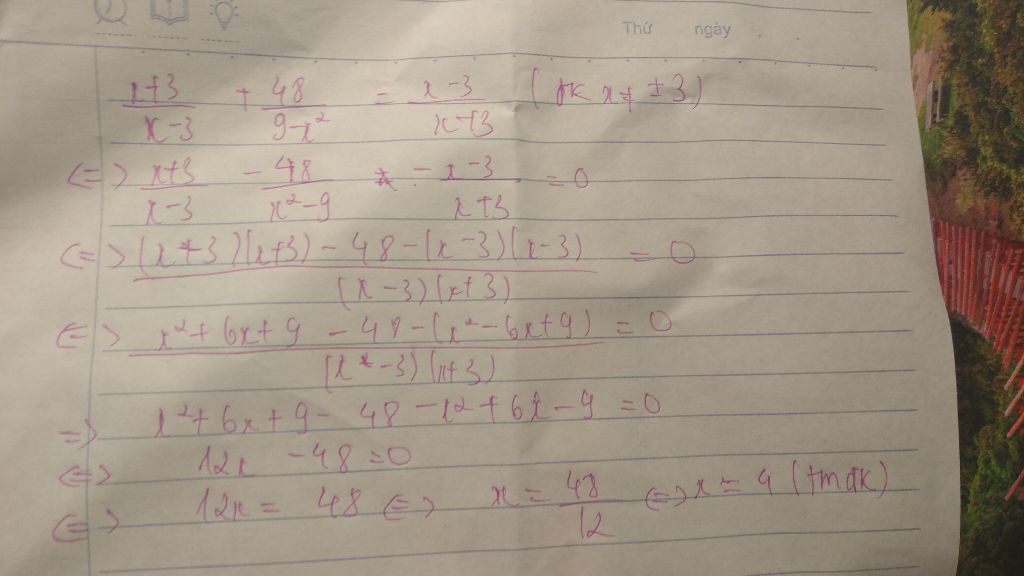 Thứ ngày
x+3/x-3 + 48/9-x² = x-3/x+3 (đk x≠ ±3)
<=> x+3/x-3 - 48/x²-9 - x-3/x+3 = 0
<=> (x+3)(x+3) - 48 - (x-3)(x-3)/(x-3)(x+3) = 0
<=> x²+6x+9 - 48 - (x²-6x+9)/(x-3)(x+3) = 0
=> x²+6x+9 - 48 - x²+6x-9 = 0
<=> 12x - 48 = 0
<=> 12x = 48 <=> x = 48/12 <=> x = 4 (tmđk)